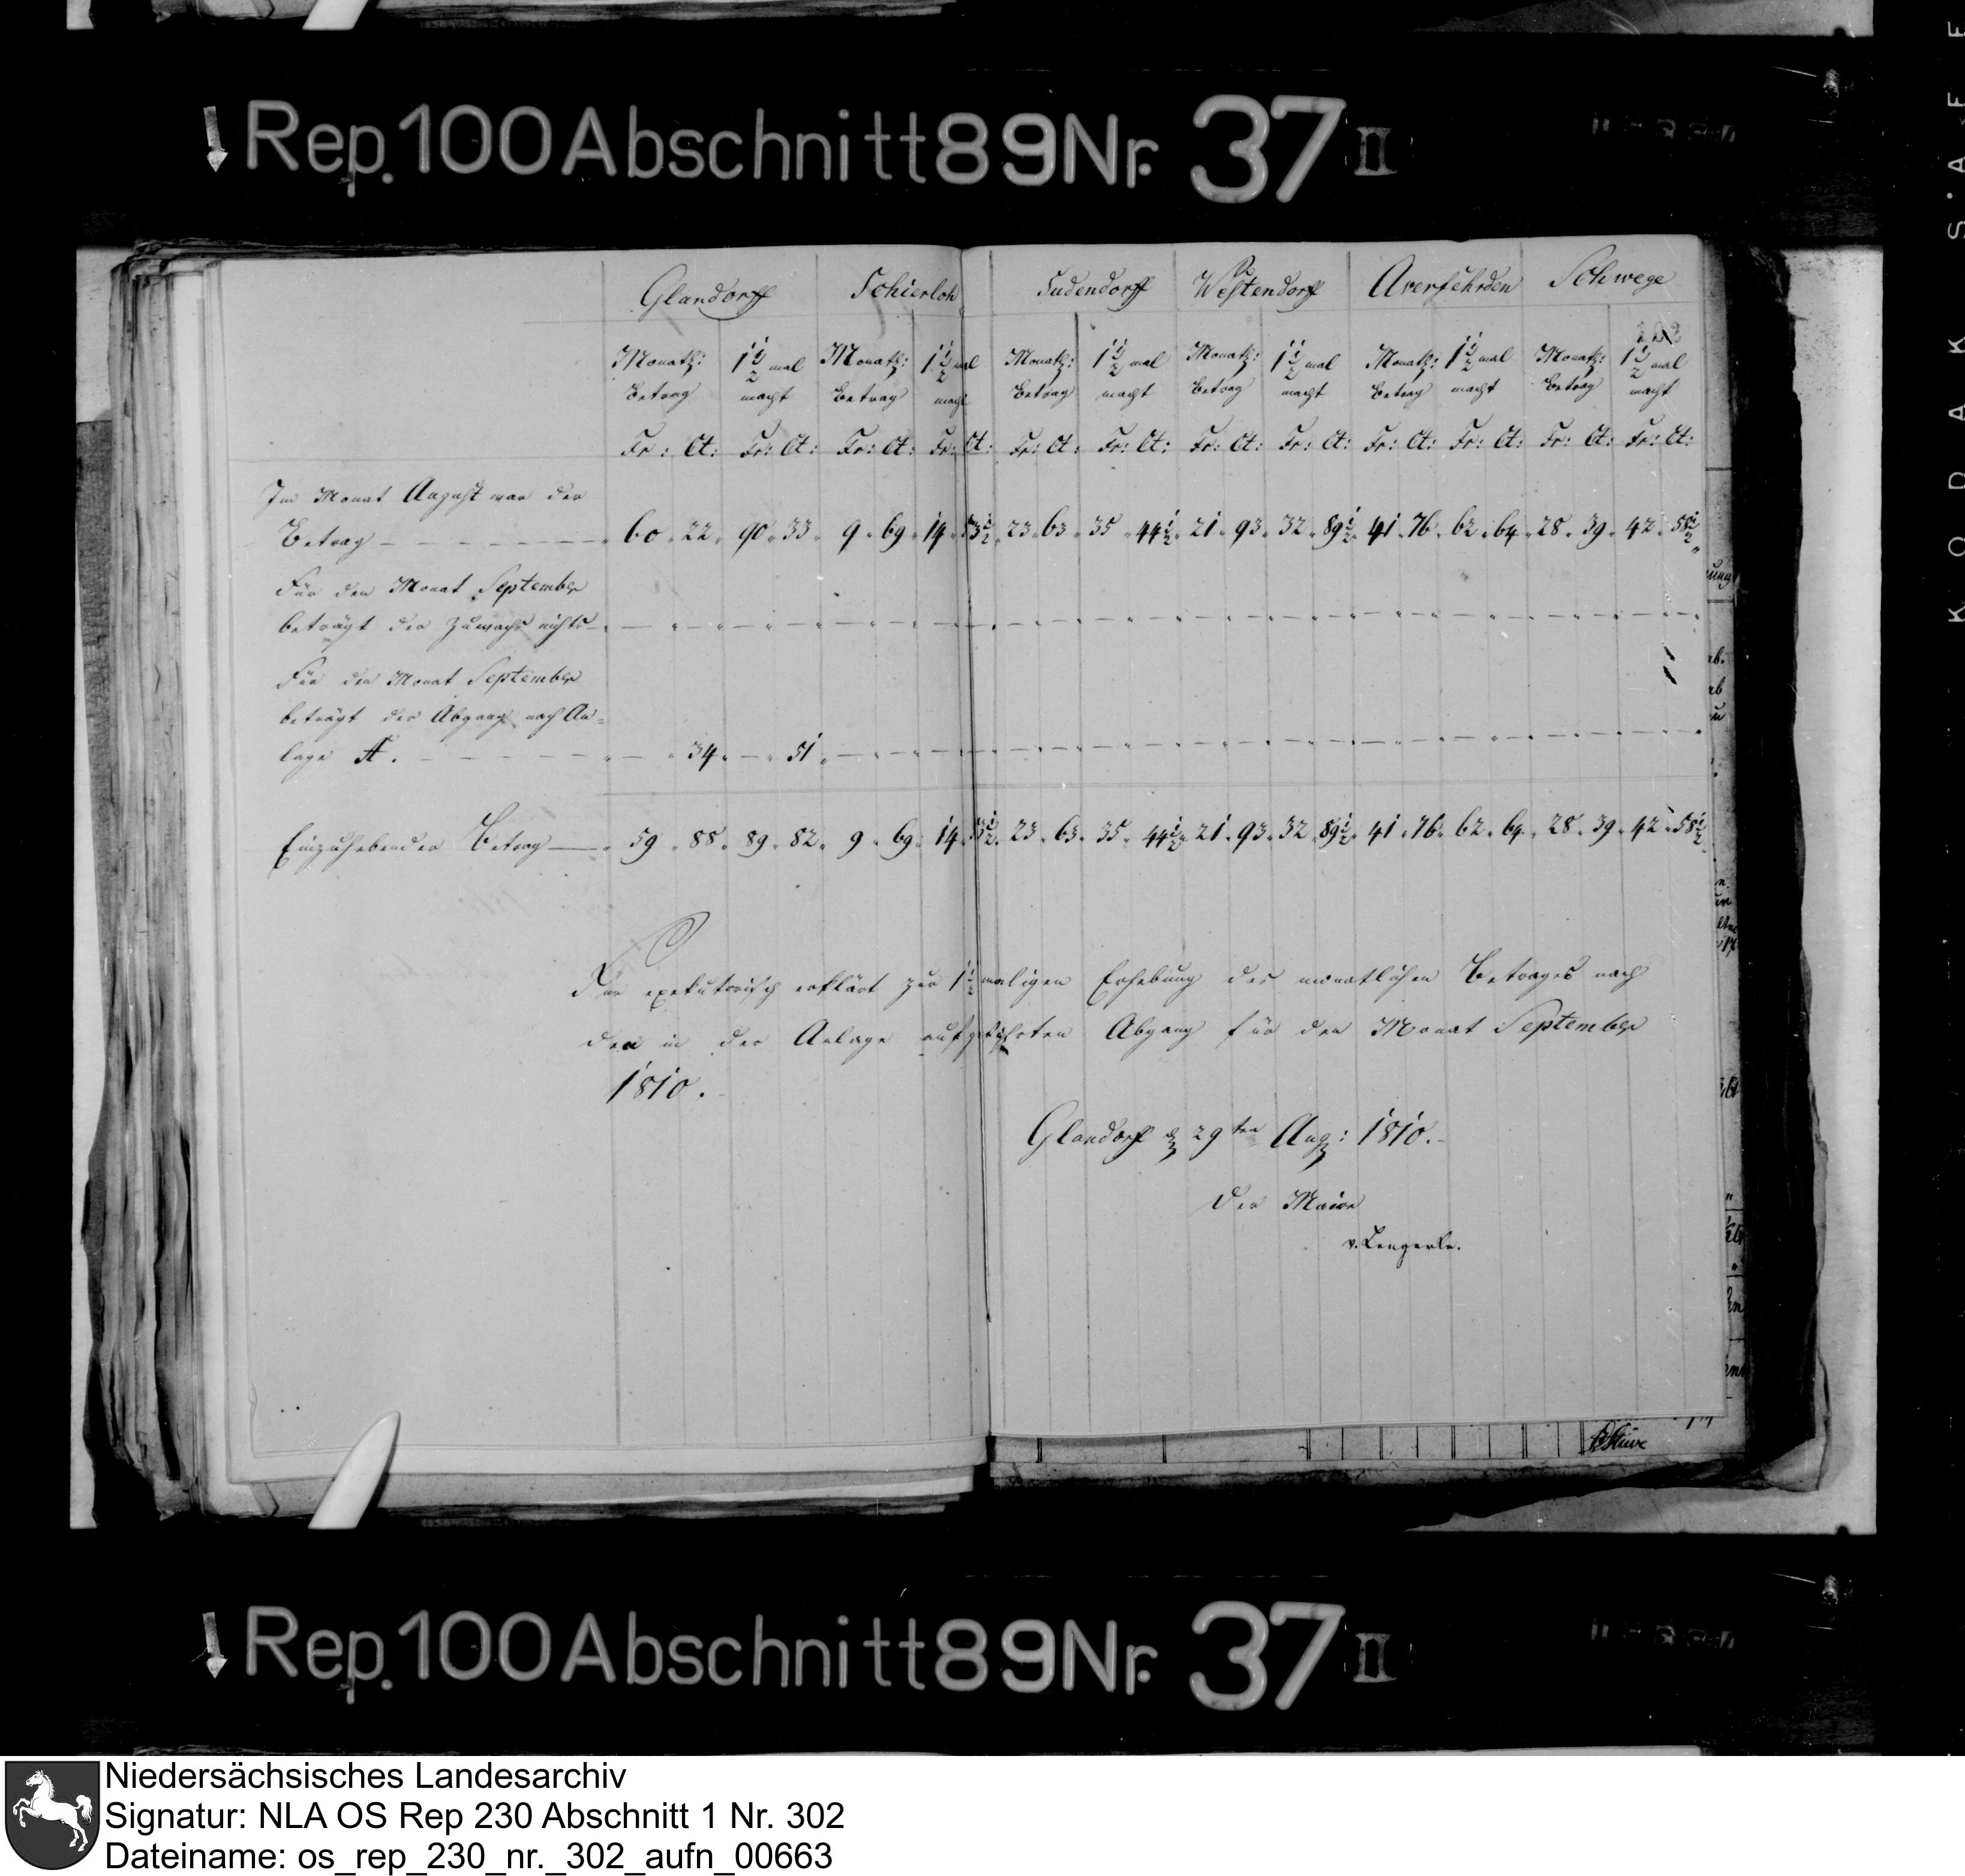 Rep. 100 Abschnitt 89 Nr. 37 II
Glandorff Schierloh Sudendorff Westendorff Averfehrden Schwege
Monatl: 1 1/2 mal Monatl: 1 1/2 mal Monatl: 1 1/2 mal Monatl: 1 1/2 mal Monatl: 1 1/2 mal Monatl: 1 1/2 mal
Betrag macht Betrag macht Betrag macht Betrag macht Betrag macht Betrag macht
Fr: Ct: Fr: Ct: Fr: Ct: Fr: Ct: Fr: Ct: Fr: Ct: Fr: Ct: Fr: Ct: Fr: Ct: Fr: Ct: Fr: Ct: Fr: Ct:
Im Monat August war der
Betrag 60 22 90 33 9 69 14 53 1/2 23 63 35 44 1/2 21 93 32 89 1/2 41 76 62 64 28 39 42 58 1/2
Für den Monat September
beträgt der Zuwachs nichts
Für den Monat September
beträgt der Abgang nach An=
lage A. 34 51
Einzuhebender Betrag 59 88 89 82 9 69 14 53 1/2 23 63 35 44 1/2 21 93 32 89 1/2 41 76 62 64 28 39 42 58 1/2
Für exekutorisch erklärt zur 1 1/2 maligen Erhebung des monatlichen Betrages nach
den in der Anlage aufgeführten Abgang für den Monat September
1810.
Glandorff d 29ten Aug: 1810.
Der Maire
v. Lengerke.
Stüve
Rep. 100 Abschnitt 89 Nr. 37 II
KODAK S'AFE
Niedersächsisches Landesarchiv
Signatur: NLA OS Rep 230 Abschnitt 1 Nr. 302
Dateiname: os_rep_230_nr._302_aufn_00663